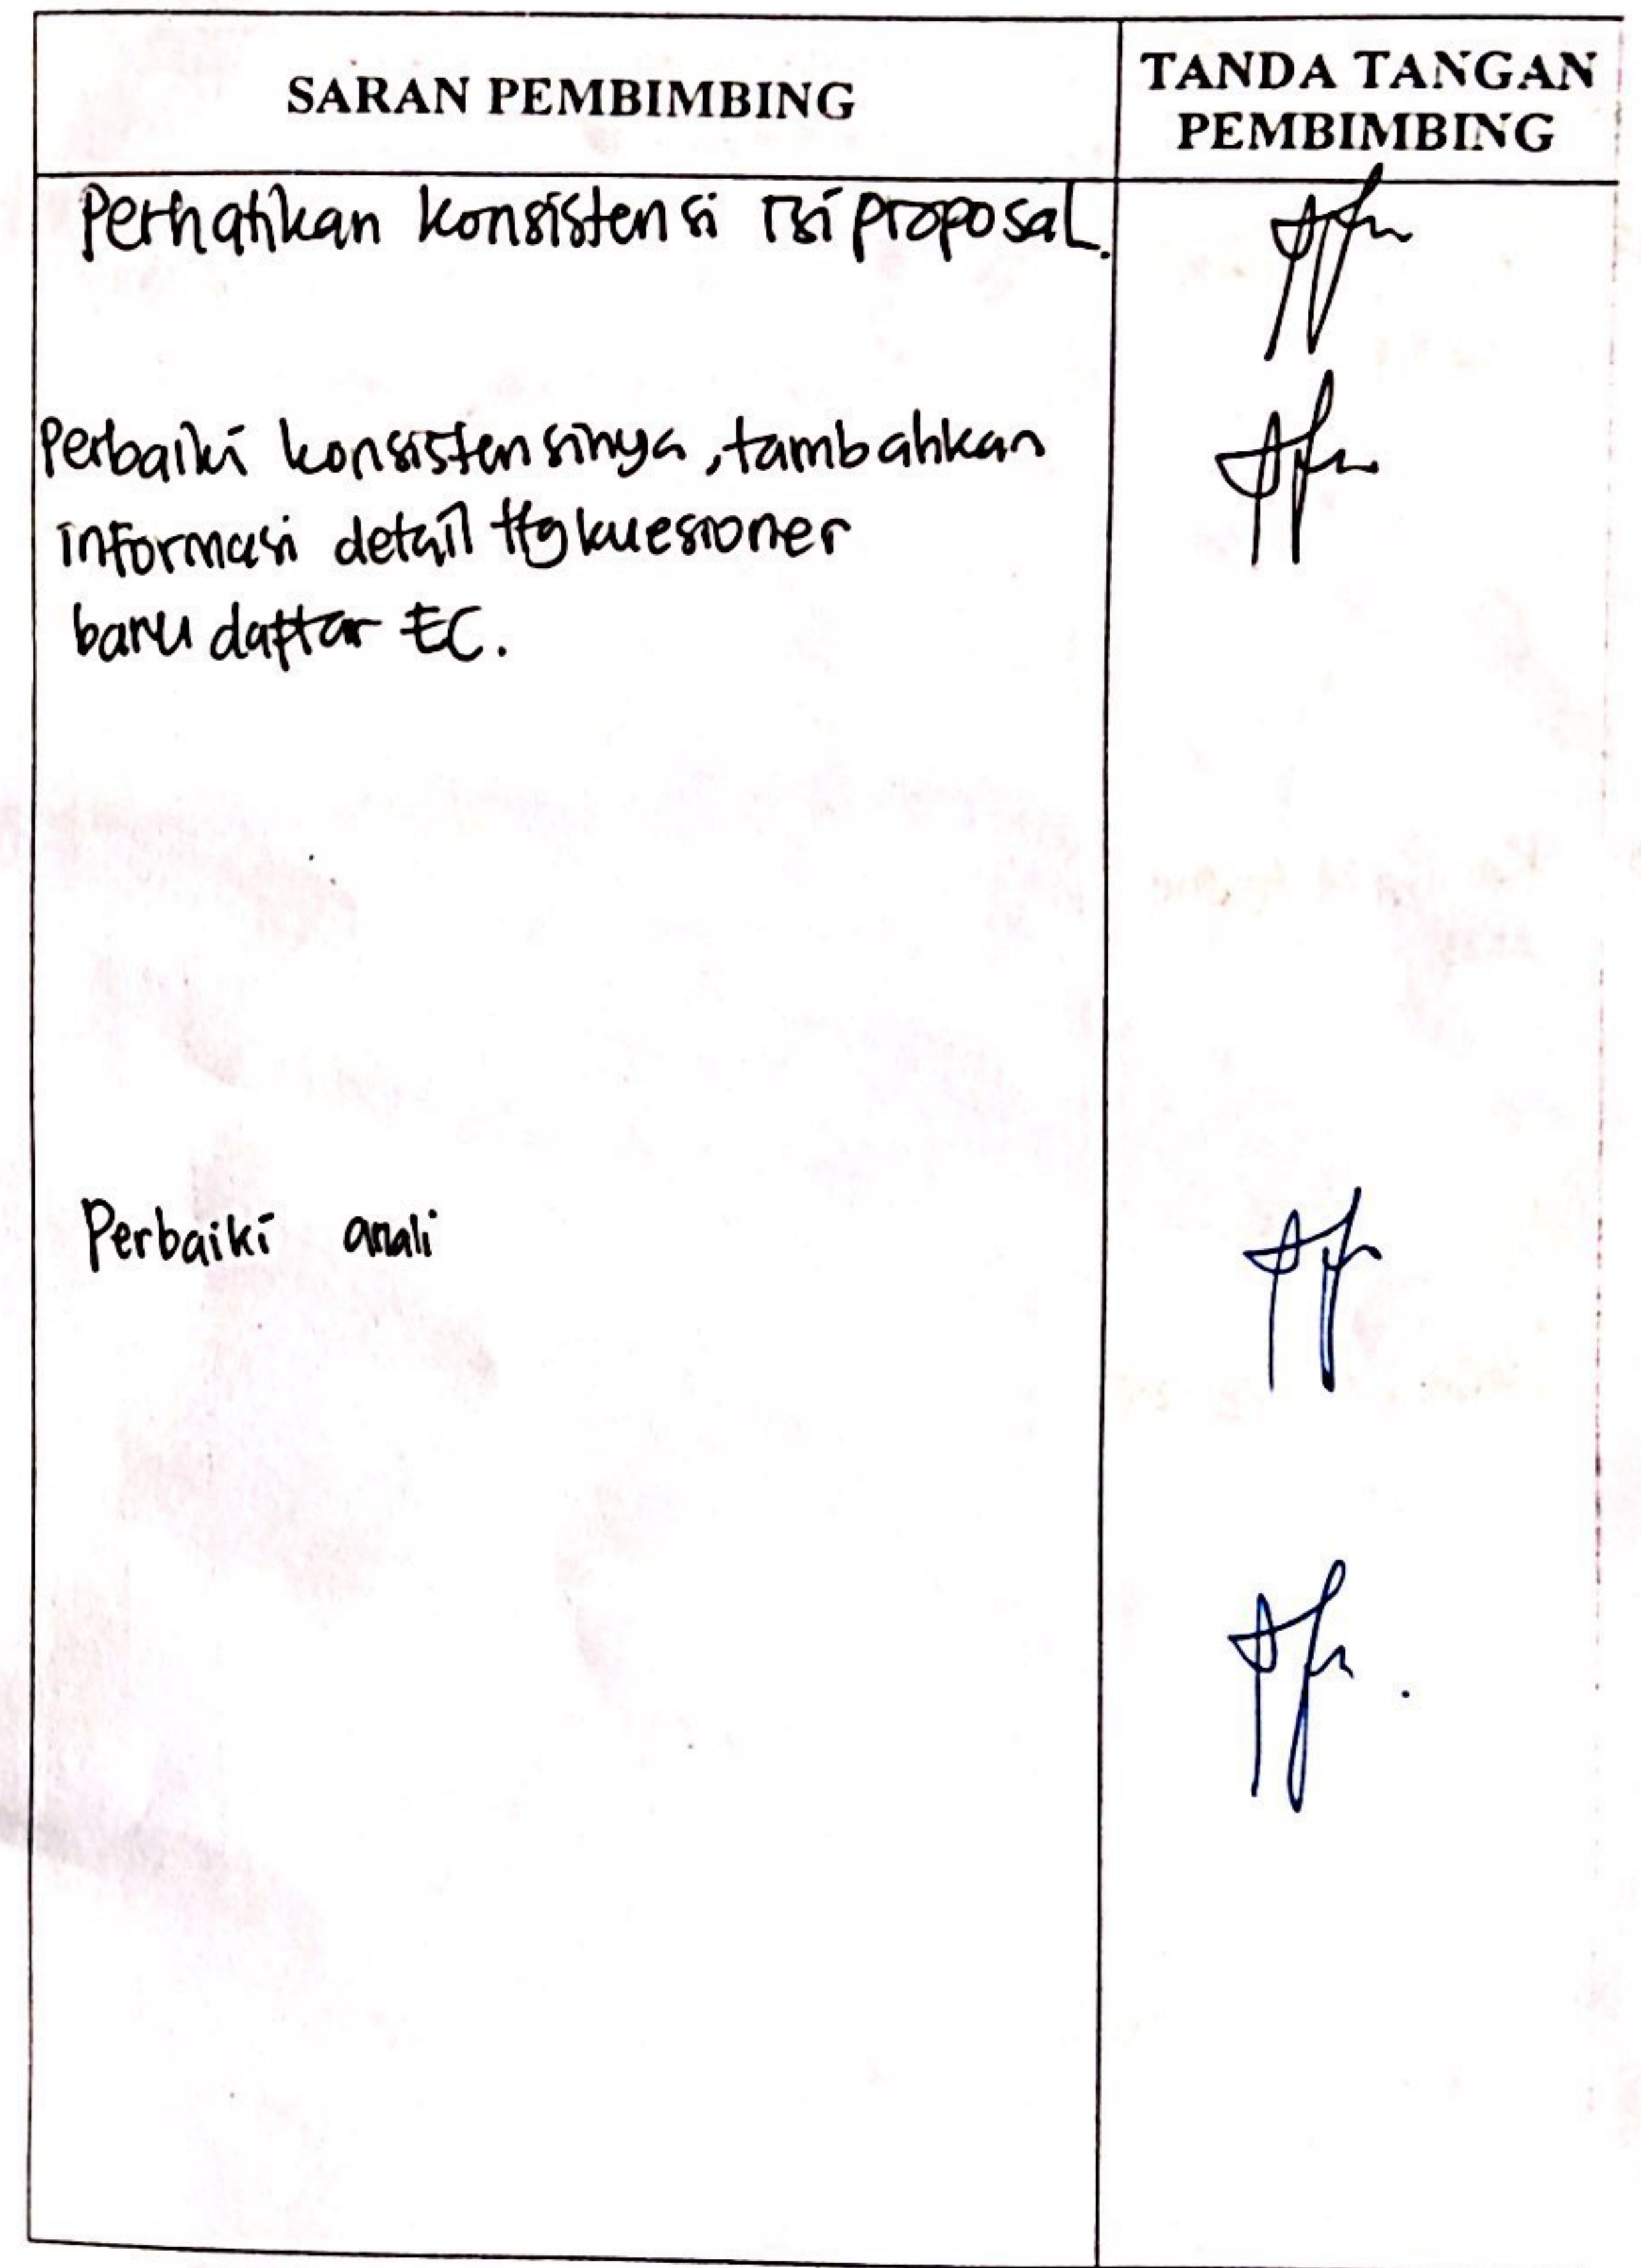 SARAN PEMBIMBING
TANDA TANGAN
PEMBIMBING
Perhatikan konsistensi isi proposal.
Perbaiki konsistensinya, tambahkan
informasi detail ttg kuesioner
baru daftar EC.
Perbaiki anali